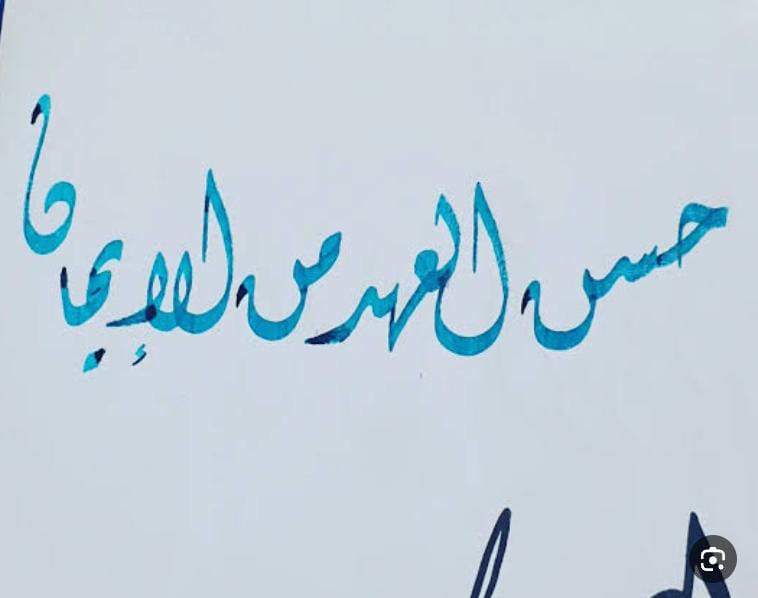 حسن العهد من الإيمان